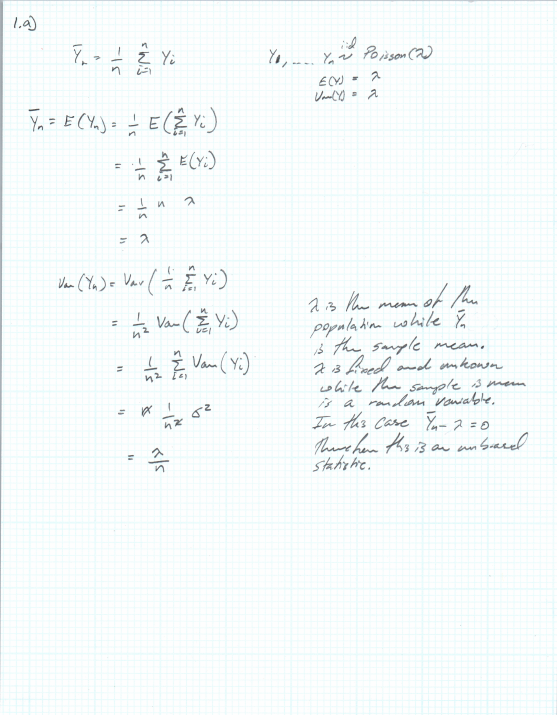 1.a)
Ȳₙ = 1/n Σⁿᵢ₌₁ Yᵢ
Y₁, .... Yₙ iid ~ Poisson(λ)
E(Y) = λ
Var(Y) = λ
Ȳₙ = E(Yₙ) = 1/n E(Σⁿᵢ₌₁ Yᵢ)
= 1/n Σⁿᵢ₌₁ E(Yᵢ)
= 1/n n λ
= λ
Var(Yₙ) = Var(1/n Σⁿᵢ₌₁ Yᵢ)
= 1/n² Var(Σⁿᵢ₌₁ Yᵢ)
= 1/n² Σⁿᵢ₌₁ Var(Yᵢ)
= n 1/n² σ²
= λ/n
λ is the mean of the
population while Ȳₙ
is the sample mean.
λ is fixed and unknown
while the sample is mean
is a random variable.
In this case Ȳₙ - λ = 0
Therefore this is an unbiased
statistic.